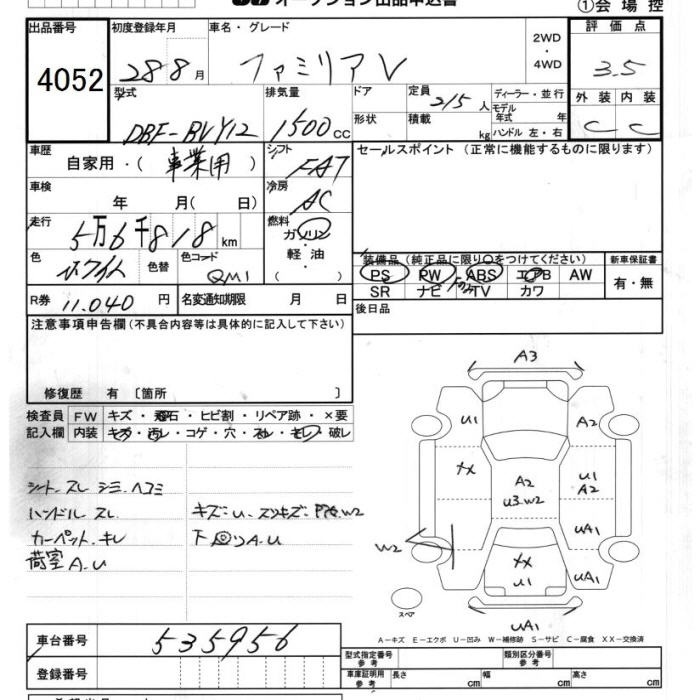 オークション出品申込書
①会場控
出品番号
4052
初度登録年月
28 8 月
車名・グレード
ファミリア V
2WD
・
4WD
評価点
3.5
型式
DBF-BVY12
排気量
1500 cc
ドア
形状
定員
2/5 人
積載
kg
ディーラー・並行
モデル
年式
年
ハンドル 左・右
外装
内装
C
C
車歴
自家用・(事業用)
シフト
FAT
セールスポイント(正常に機能するものに限ります)
車検
年 月( 日)
冷房
AC
走行
5万6千818 km
燃料
ガソリン
・
軽油
・
( )
色
ホワイト
色替
色コード
QM1
装備品(純正品に限り○をつけてください)
新車保証書
PS PW ABS エアB AW
SR ナビ TV カワ
有・無
R券
11.040 円
名変通知期限
月 日
後日品
注意事項申告欄(不具合内容等は具体的に記入して下さい)
修復歴 有 〔箇所 〕
検査員
記入欄
FW
キズ・飛石・ヒビ割・リペア跡・×要
内装
キズ・汚れ・コゲ・穴・スレ・キレ・破レ
シート.スレ シミ.ヘコミ
ハンドル スレ
カーペット.キレ
荷室 A.U
キズ=U.スリキズ=
W2
下回りA.U
A3
U1
A2
XX
A2
U3.W2
U1
A2
UA1
W2
XX
U1
UA1
スペア
UA1
A－キズ E－エクボ U－凹み W－補修跡 S－サビ C－腐食 XX－交換済
車台番号
535956
登録番号
型式指定番号
参考
類別区分番号
参考
車庫証明用
参考
長さ
cm
幅
cm
高さ
cm